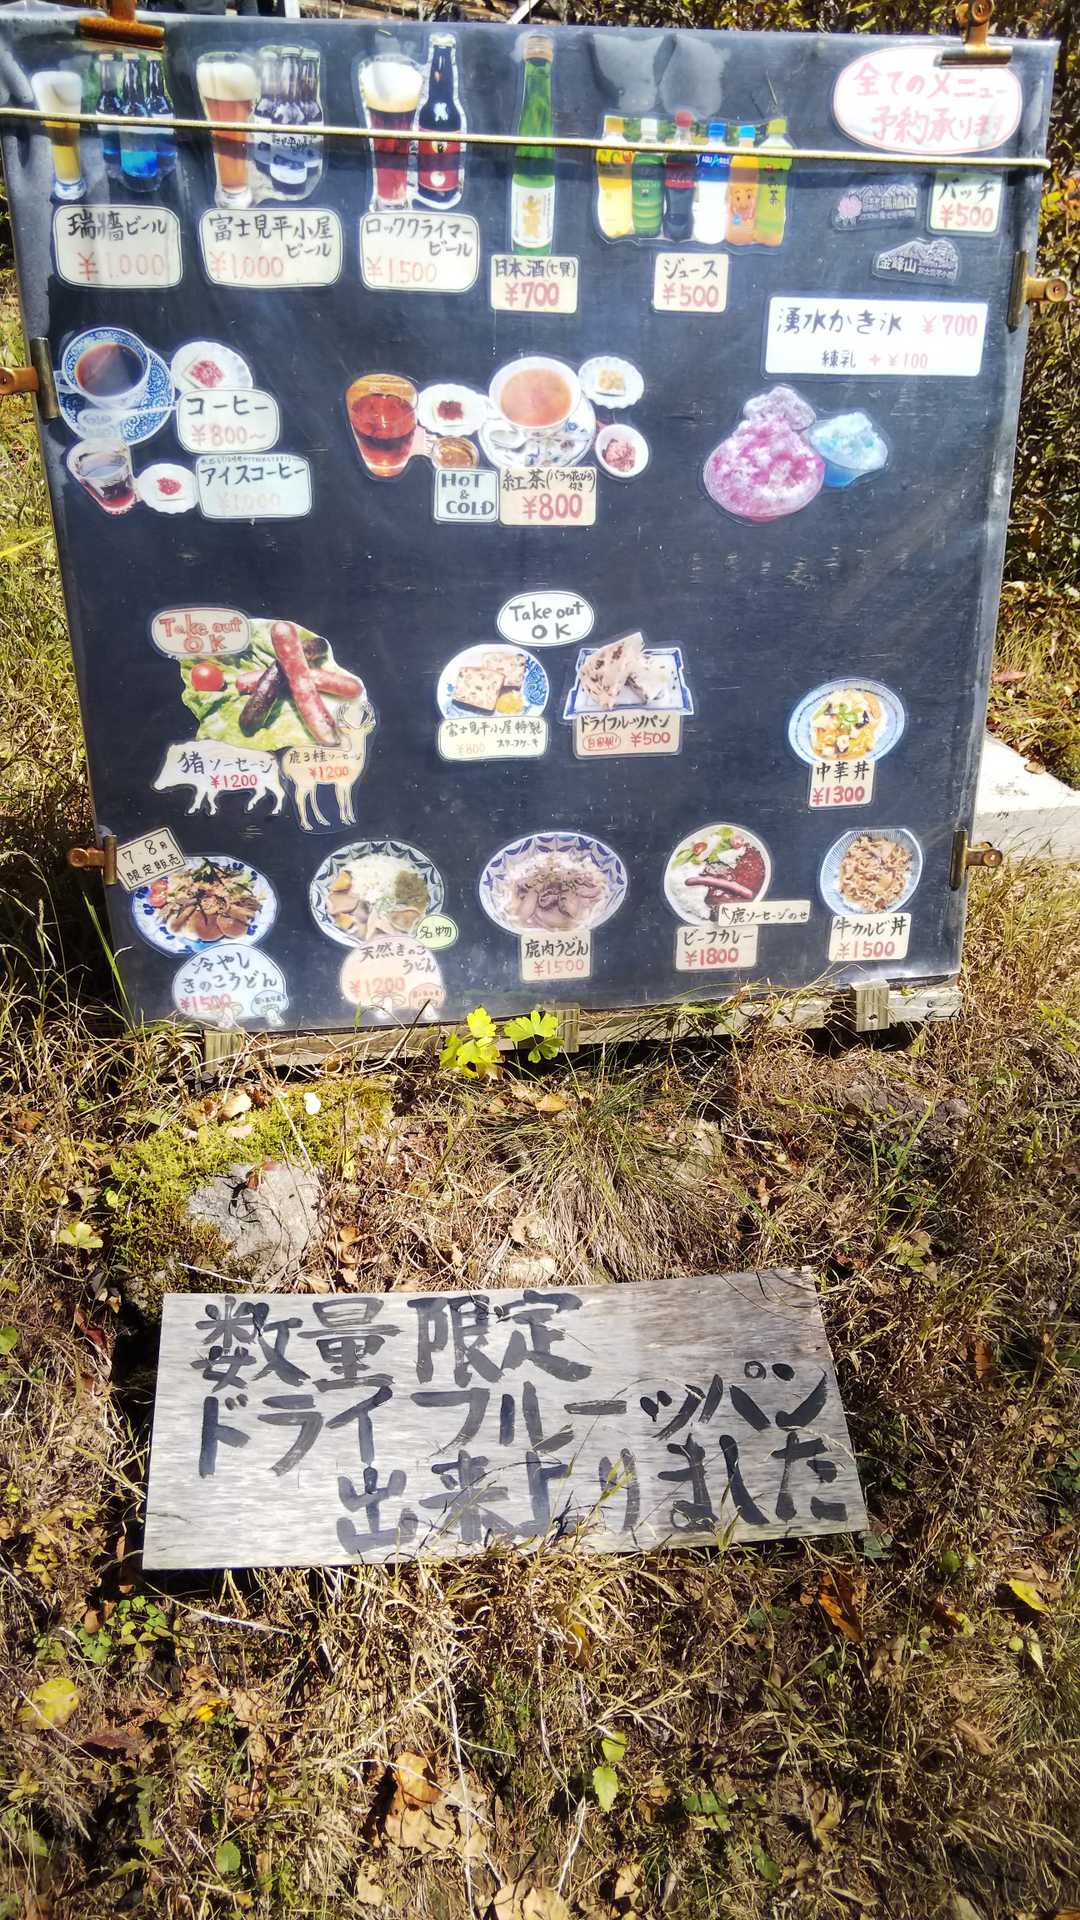 全てのメニュー
予約承ります
瑞牆ビール
¥1000
富士見平小屋
ビール
¥1000
ロッククライマー
ビール
¥1500
日本酒(七賢)
¥700
ジュース
¥500
バッチ
¥500
瑞牆山
金峰山
富士見平小屋
湧水かき氷 ¥700
練乳 +¥100
コーヒー
¥800~
アイスコーヒー
¥1000
HOT
&
COLD
紅茶(バラの花びら
付き)
¥800
Take out
OK
猪ソーセージ
¥1200
鹿3種ソーセージ
¥1200
Take out
OK
富士見平小屋特製
¥600
ドライフルーツパン
¥500
中華丼
¥1300
7・8月
限定販売
冷やし
きのこうどん
¥1500
名物
天然きのこ
うどん
¥1200
鹿肉うどん
¥1500
↖鹿ソーセージのせ
ビーフカレー
¥1800
牛カルビ丼
¥1500
数量限定
ドライフルーツパン
出来上りました